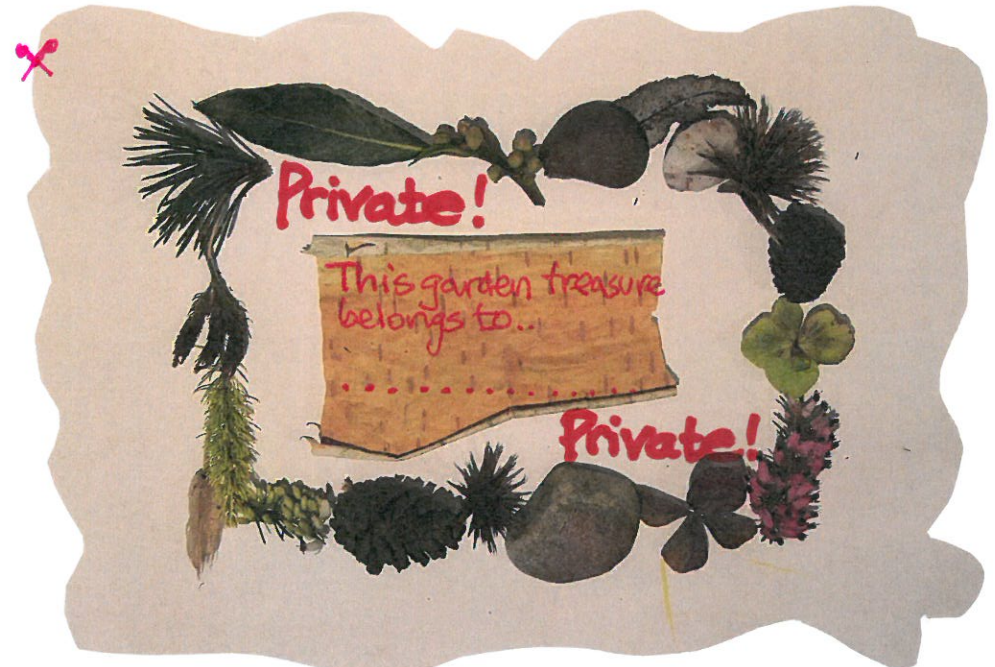 Private!
This garden treasure
belongs to..
.............
Private!